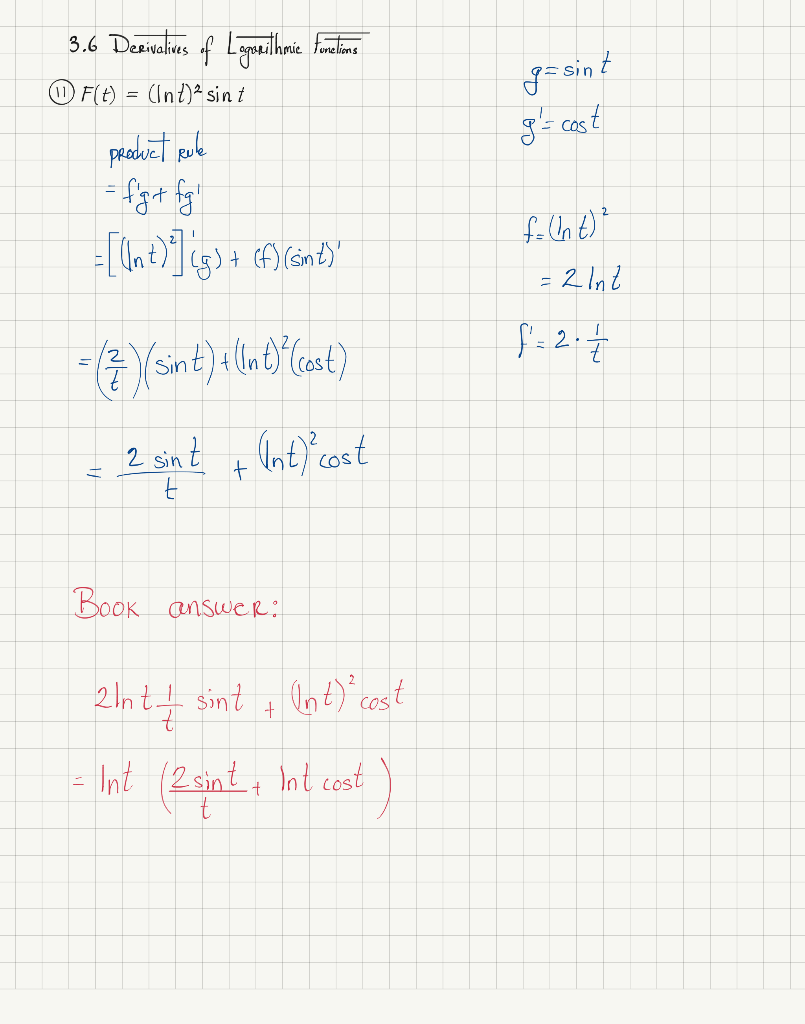 3.6 Derivatives of Logarithmic Functions
⑪ F(t) = (ln t)² sin t
product rule
= f'g + fg'
= [(ln t)²]'(g) + (f)(sin t)'
= (2/t)(sin t) + (ln t)²(cos t)
= 2 sin t / t + (ln t)² cos t
g = sin t
g' = cos t
f = (ln t)²
= 2 ln t
f' = 2 · 1/t
Book answer:
2 ln t 1/t sin t + (ln t)² cos t
= ln t (2 sin t / t + ln t cos t)